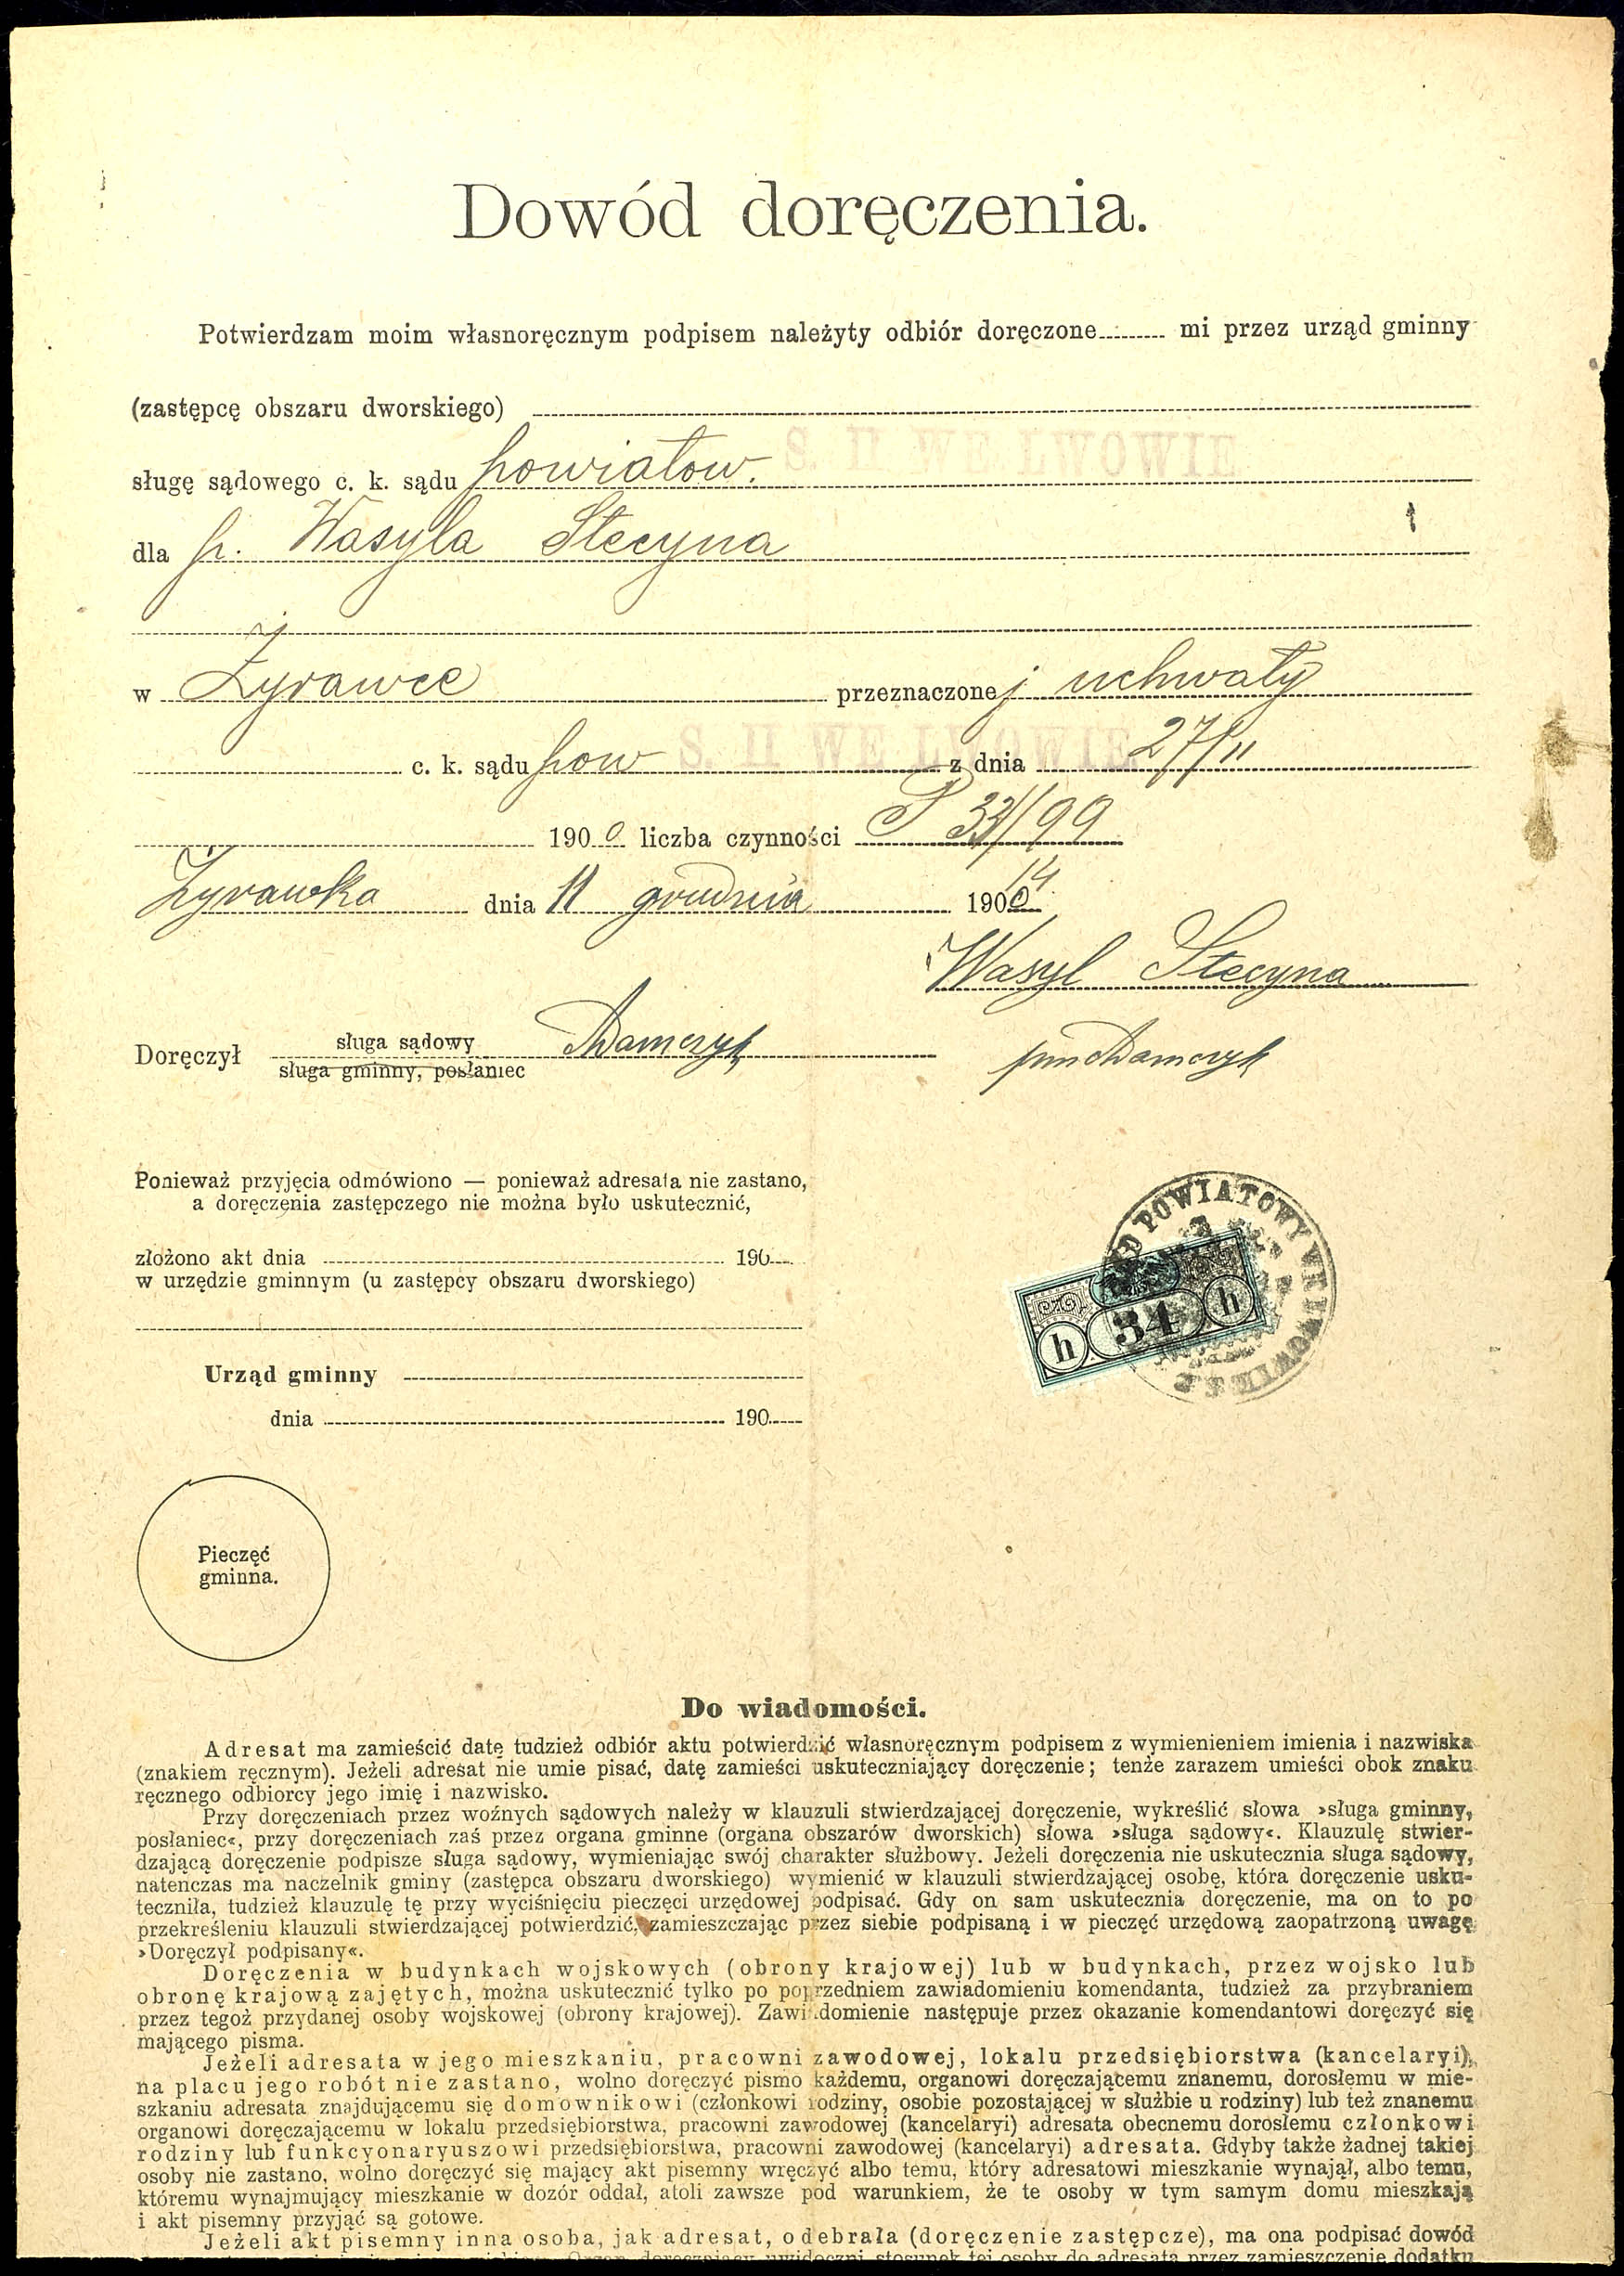 Dowód doręczenia.
Potwierdzam moim własnoręcznym podpisem należyty odbiór doręczone......... mi przez urząd gminny
(zastępcę obszaru dworskiego)
S. II WE LWOWIE
sługę sądowego c. k. sądu powiatow.
dla p. Wasyla Stecyna
w Żyrawce przeznaczonej uchwały
c. k. sądu pow S. II WE LWOWIE z dnia 27/11
1900 liczba czynności P 33/99
Żyrawka dnia 11 grudnia 1900
14
Wasyl Stecyna
Doręczył sługa sądowy Adamczyk
sługa gminny, posłaniec
Adamczyk
Ponieważ przyjęcia odmówiono — ponieważ adresata nie zastano,
a doręczenia zastępczego nie można było uskutecznić,
złożono akt dnia 190
w urzędzie gminnym (u zastępcy obszaru dworskiego)
POWIATOWY WE LWOWIE
h 34 h
Urząd gminny
dnia 190
Pieczęć
gminna.
Do wiadomości.
Adresat ma zamieścić datę tudzież odbiór aktu potwierdzić własnoręcznym podpisem z wymienieniem imienia i nazwiska
(znakiem ręcznym). Jeżeli adresat nie umie pisać, datę zamieści uskuteczniający doręczenie; tenże zarazem umieści obok znaku
ręcznego odbiorcy jego imię i nazwisko.
Przy doręczeniach przez woźnych sądowych należy w klauzuli stwierdzającej doręczenie, wykreślić słowa »sługa gminny,
posłaniec«, przy doręczeniach zaś przez organa gminne (organa obszarów dworskich) słowa »sługa sądowy«. Klauzulę stwier-
dzającą doręczenie podpisze sługa sądowy, wymieniając swój charakter służbowy. Jeżeli doręczenia nie uskutecznia sługa sądowy,
natenczas ma naczelnik gminy (zastępca obszaru dworskiego) wymienić w klauzuli stwierdzającej osobę, która doręczenie usku-
teczniła, tudzież klauzulę tę przy wyciśnięciu pieczęci urzędowej podpisać. Gdy on sam uskutecznia doręczenie, ma on to po
przekreśleniu klauzuli stwierdzającej potwierdzić, zamieszczając przez siebie podpisaną i w pieczęć urzędową zaopatrzoną uwagę
»Doręczył podpisany«.
Doręczenia w budynkach wojskowych (obrony krajowej) lub w budynkach, przez wojsko lub
obronę krajową zajętych, można uskutecznić tylko po poprzedniem zawiadomieniu komendanta, tudzież za przybraniem
przez tegoż przydanej osoby wojskowej (obrony krajowej). Zawiadomienie następuje przez okazanie komendantowi doręczyć się
mającego pisma.
Jeżeli adresata w jego mieszkaniu, pracowni zawodowej, lokalu przedsiębiorstwa (kancelaryi),
na placu jego robót nie zastano, wolno doręczyć pismo każdemu, organowi doręczającemu znanemu, dorosłemu w mie-
szkaniu adresata znajdującemu się domownikowi (członkowi rodziny, osobie pozostającej w służbie u rodziny) lub też znanemu
organowi doręczającemu w lokalu przedsiębiorstwa, pracowni zawodowej (kancelaryi) adresata obecnemu dorosłemu członkowi
rodziny lub funkcyonaryuszowi przedsiębiorstwa, pracowni zawodowej (kancelaryi) adresata. Gdyby także żadnej takiej
osoby nie zastano, wolno doręczyć się mający akt pisemny wręczyć albo temu, który adresatowi mieszkanie wynajął, albo temu,
któremu wynajmujący mieszkanie w dozór oddał, atoli zawsze pod warunkiem, że te osoby w tym samym domu mieszkają
i akt pisemny przyjąć są gotowe.
Jeżeli akt pisemny inna osoba, jak adresat, odebrała (doręczenie zastępcze), ma ona podpisać dowód
Organ doręczający uwidoczni stosunek tej osoby do adresata przez zamieszczenie dodatku